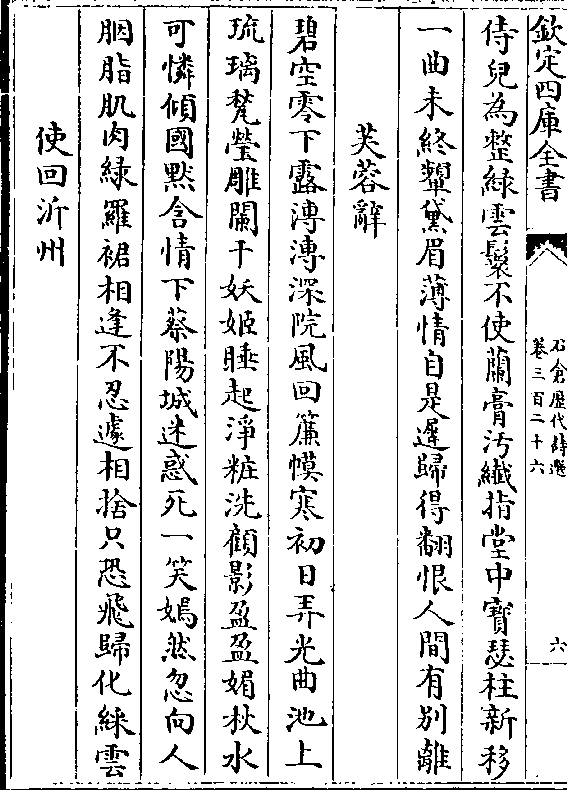 欽定四庫全書
石倉歷代詩選
卷三百二十六
六
侍兒為整綠雲鬟不使蘭膏汚纎指堂中寳瑟柱新移
一曲未終顰黛眉薄情自是遲歸得翻恨人間有别離
芙蓉辭
碧空零下露漙漙深院風回簾幙寒初日弄光曲池上
琉璃甃瑩雕闌干妖姬睡起淨粧洗顧影盈盈媚秋水
可憐傾國黙含情下蔡陽城迷惑死一笑嫣然忽向人
胭脂肌肉緑羅裾相逢不忍遽相捨只恐飛歸化綵雲
使回沂州